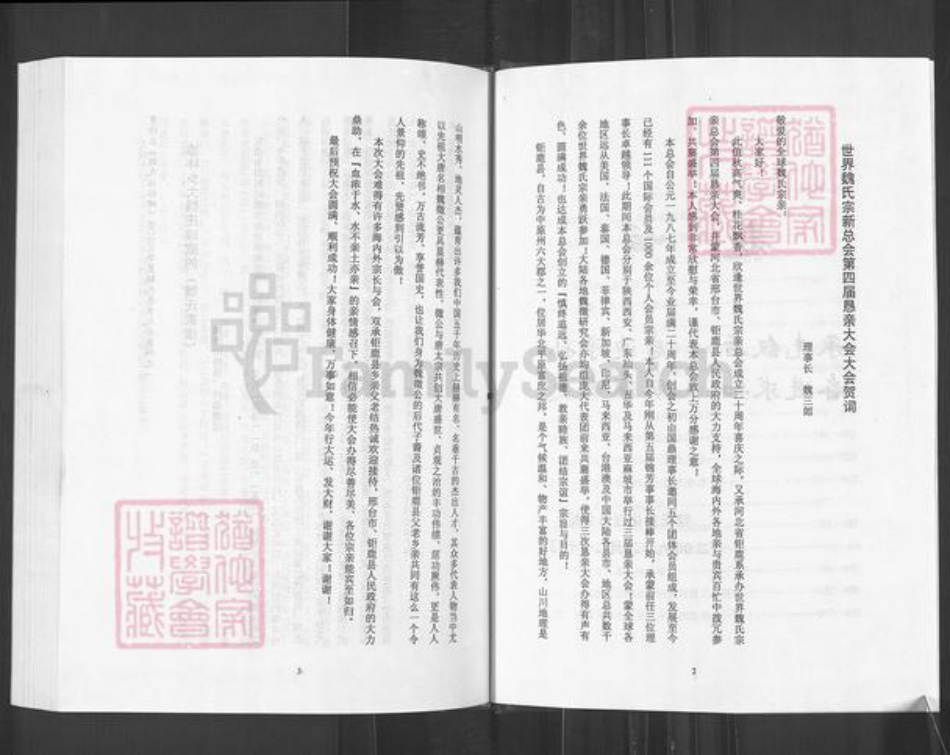 世界魏氏宗新总会第四届恳亲大会大会贺词
理事长 魏三郎
敬爱的全球魏氏宗亲:
大家好!
此值秋高气爽、桂花飘香,欣逢世界魏氏宗亲总会成立二十周年喜庆之际,又承河北省钜鹿系承办世界魏氏宗
亲总会第四届恳亲大会,并蒙河北省邢台市、钜鹿县人民政府的大力支持,全球海内外各地亲与贵宾百忙中拨冗参
加,共襄盛举!本人感到非常欣慰与荣幸,谨代表本总会致上万分感谢之意!
本总会自公元一九八七年成立至今业届满二十周年,创会之初由国鼎理事长邀同五个团体会员组成,发展至今
已经有111个国际会员及1000余位个人会员宗亲!本人自今年刚从第五届锦芳事事长接棒开始,承蒙前任三位理
事长卓越领导!此期间本总会分别于陕西西安、广东汕头、五华及马来西亚麻坡市举行过三届恳亲大会!蒙全球各
地区远从美国、法国、泰国、德国、菲律宾、新加坡、印尼、马来西亚、台港澳及中国大陆各县市、地区总共数千
余位世界魏氏宗亲勇跃参加!大陆各地魏微研究会亦均组庞大代表团前来共襄盛举,使得三次恳亲大会办得有声有
色、圆满成功!也达成本总会创立的『慎终追远、弘扬祖德、敦亲睦族、团结宗谊』宗旨与目的!
钜鹿县,自古为中原州六大郡之一,位居华北平原富庶之邦,是个气候温和、物产丰富的好地方,山川地理是
2
山明水秀,地灵人杰,蕴育出许多我们中国五千年历史上赫赫有名、名垂千古的杰出人才,其众多代表人物当中尤
以先祖大唐名相魏徵公更具显赫代表性,徵公与唐太宗共创大唐盛世、贞观之治的丰功伟绩,居功厥伟,更是人人
称颂、史不绝书,万古流芳,享誉国史,也让我们身为魏徵公的后代子裔及诸位钜鹿县父老乡亲共同有这么一个令
人景仰的先祖、先贤感到引以为傲!
本次大会难得有许多海内外宗长与会,双承钜鹿县乡亲父老结热诚欢迎接待,邢台市、钜鹿县人民政府的大力
鼎助,在『血浓于水、水不亲土亦亲』的亲情感召下,相信必能使大会办得尽善尽美、各位宗亲能宾至如归。
最后预祝大会圆满、顺利成功!大家身体健康、万事如意!今年行大运、发大财,谢谢大家!谢谢!
3
FamilySearch